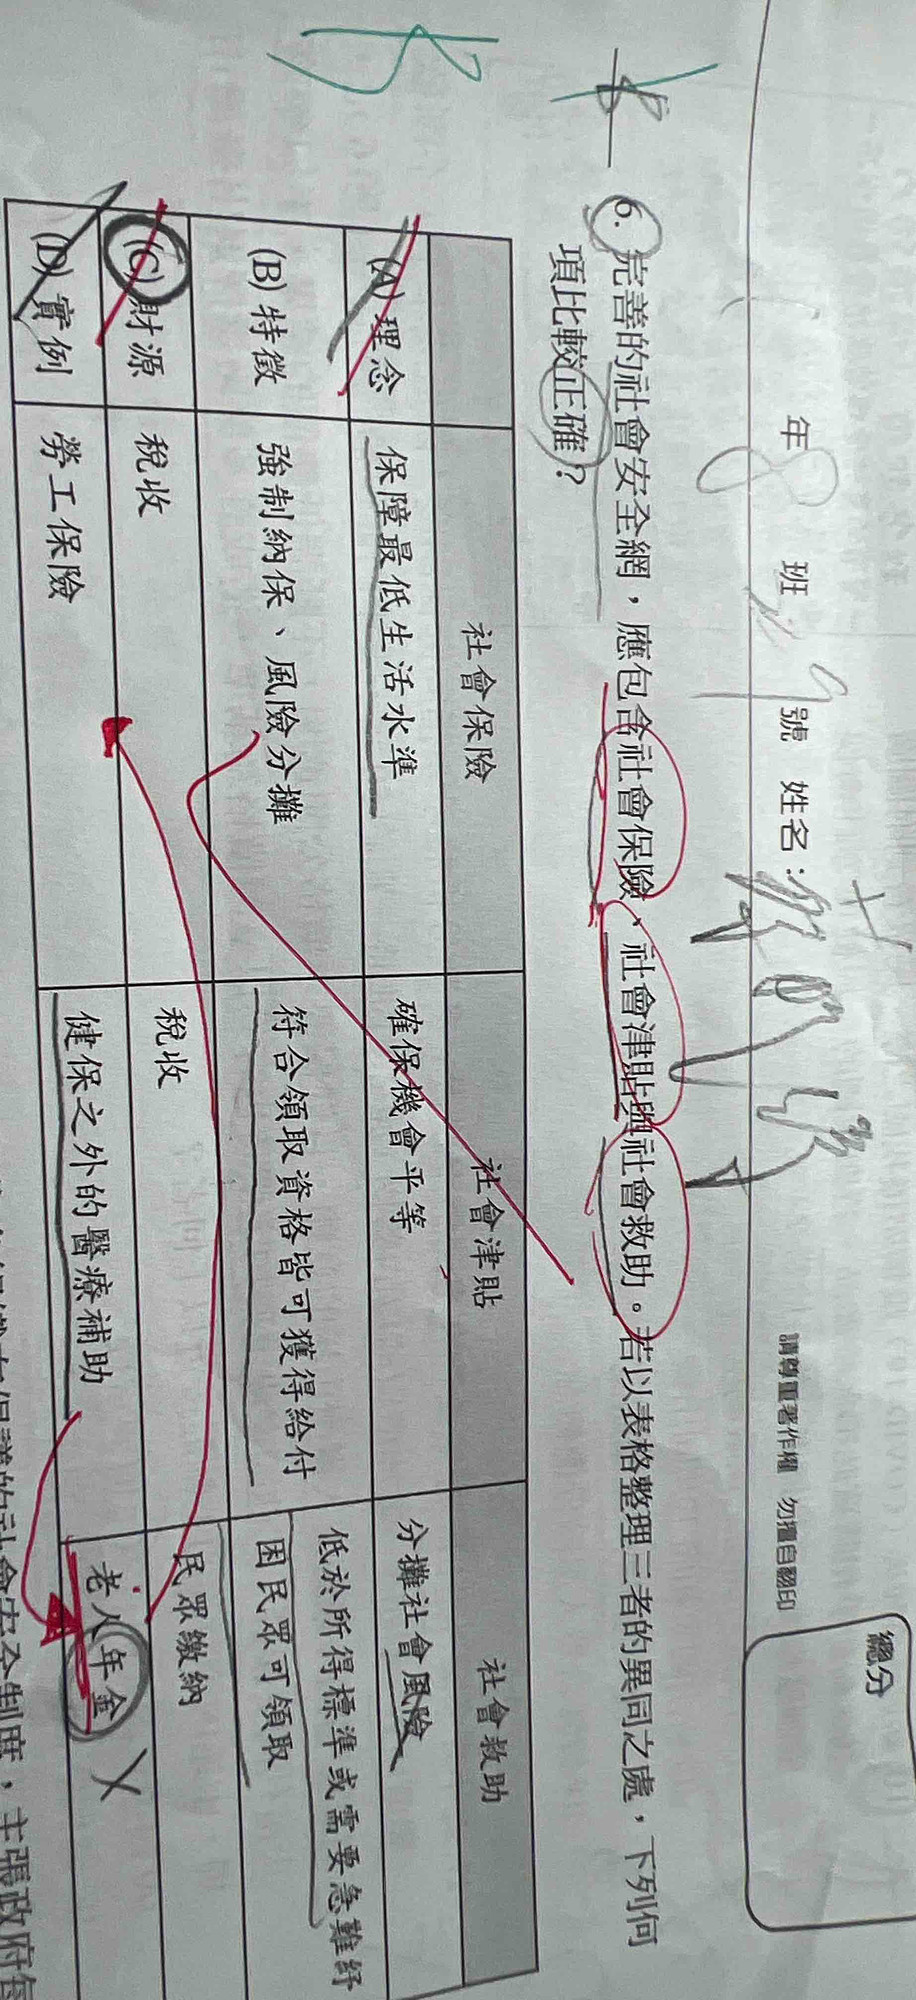 年 8 班 號 姓名：
請尊重著作權 勿擅自翻印
總分
6. 完善的社會安全網，應包含社會保險、社會津貼與社會救助。若以表格整理三者的異同之處，下列何
項比較正確？
社會保險 社會津貼 社會救助
(A)理念 保障最低生活水準 確保機會平等 分攤社會風險
(B)特徵 強制納保、風險分攤 符合領取資格皆可獲得給付 低於所得標準或需要急難紓
困民眾可領取
(C)財源 稅收 稅收 民眾繳納
(D)實例 勞工保險 健保之外的醫療補助 老人年金 X
保護的社會安全制度，主張政府每